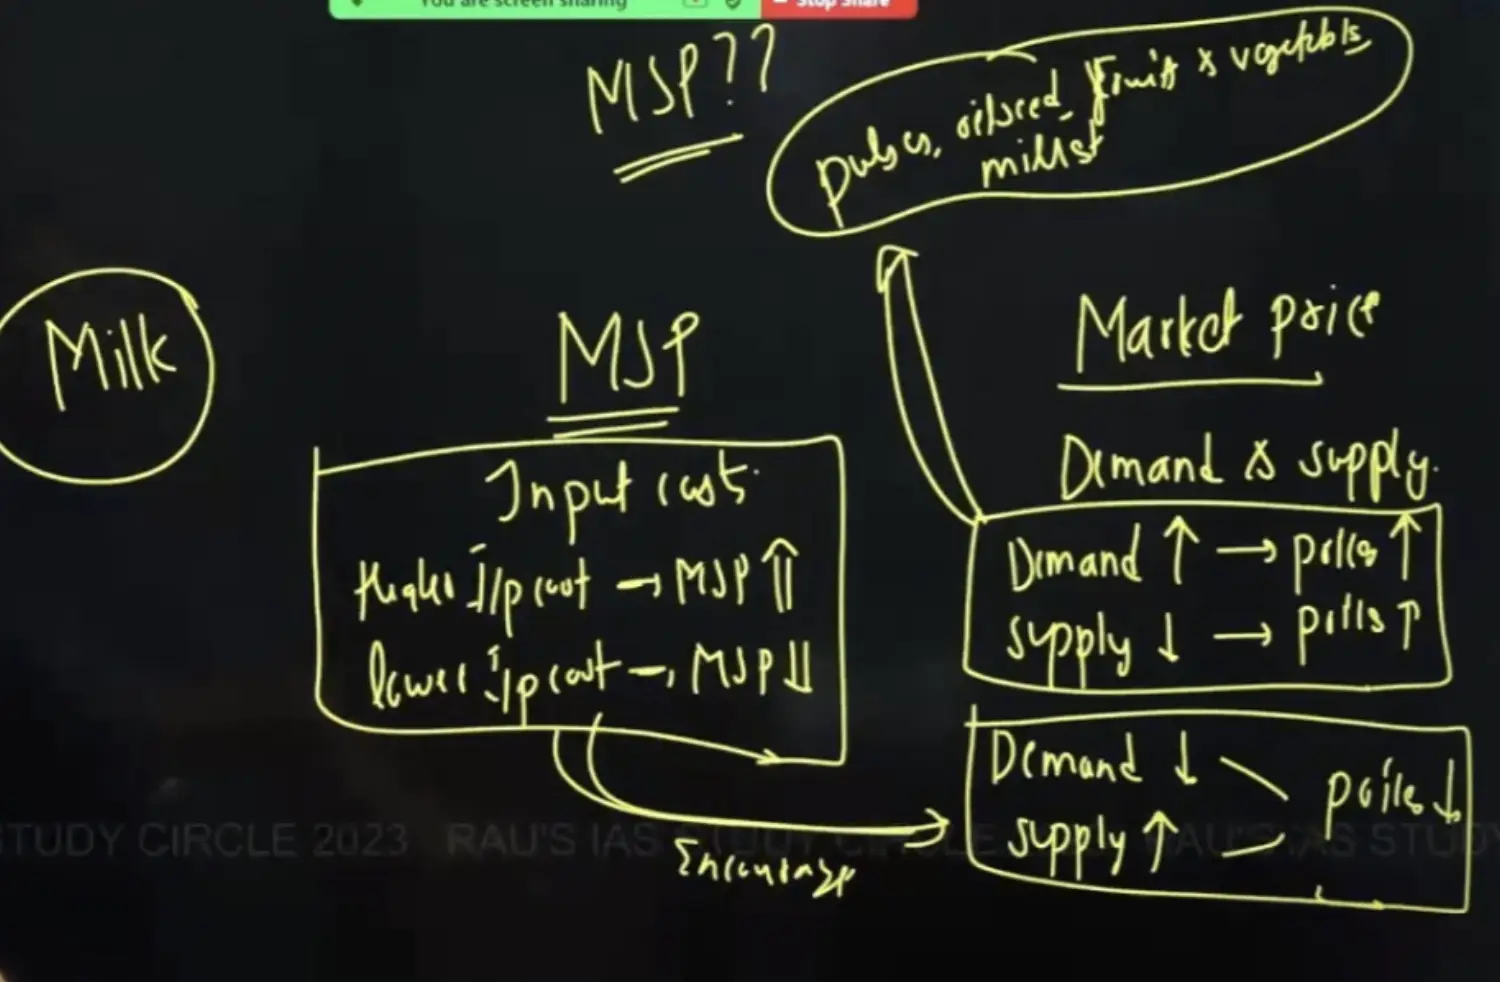 You are screen sharing
Stop Share
MSP??
pulses, oilseed, fruit & vegetables
millet
Milk
MSP
Input cost
Higher I/p cost → MSP ⇑
lower I/p cost → MSP ⇓
Encourage
Market price
Demand & supply.
Demand ↑ → prices ↑
supply ↓ → prices ↑
Demand ↓
supply ↑
prices ↓
STUDY CIRCLE 2023 RAU'S IAS STUDY CIRCLE RAU'S IAS STUDY